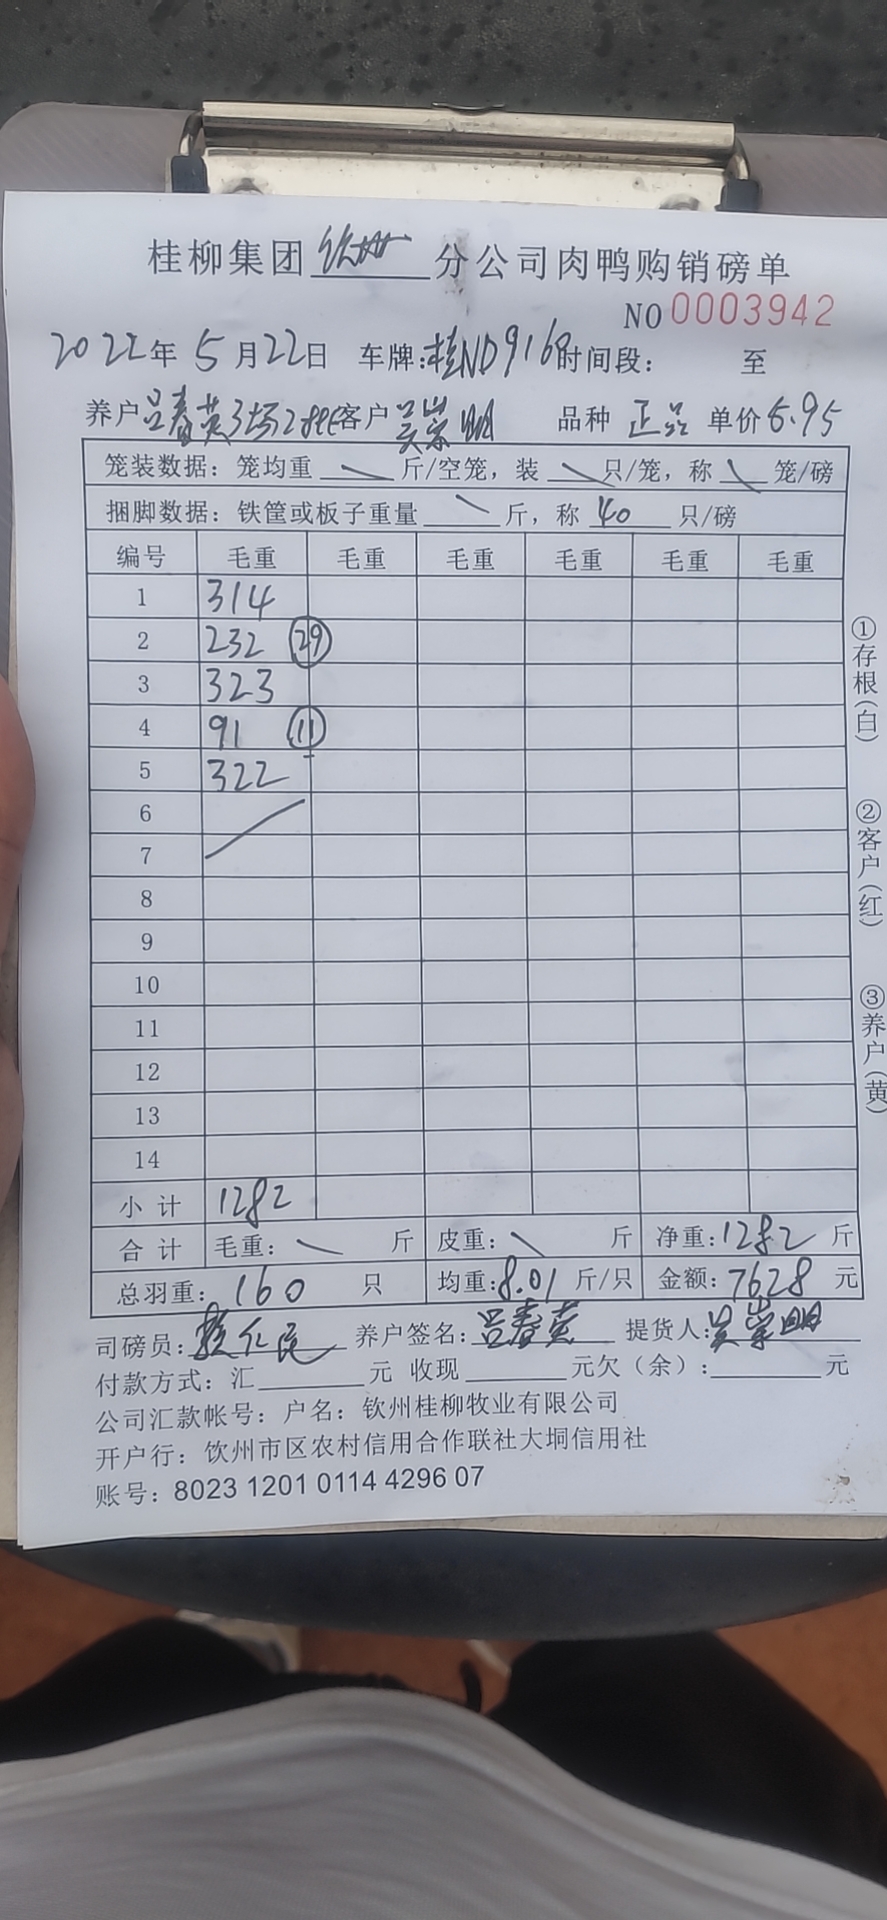 桂柳集团 钦州 分公司肉鸭购销磅单
NO 0003942
2022年 5月22日 车牌:桂ND9168 时间段: 至
养户 吕春黄3场 客户 吴崇明 品种 正品 单价 5.95
笼装数据:笼均重 \ 斤/空笼,装 \ 只/笼,称 \ 笼/磅
捆脚数据:铁筐或板子重量 \ 斤,称 40 只/磅
编号 毛重 毛重 毛重 毛重 毛重 毛重
1 314
2 232 29
3 323
4 91 11
5 322
6
7
8
9
10
11
12
13
14
小计 1282
合计 毛重: \ 斤 皮重: \ 斤 净重:1282 斤
总羽重: 160 只 均重:8.01 斤/只 金额:7628 元
司磅员: 养户签名:吕春黄 提货人:吴崇明
付款方式:汇 元 收现 元欠(余): 元
公司汇款帐号:户名:钦州桂柳牧业有限公司
开户行:饮州市区农村信用合作联社大垌信用社
账号:8023 1201 0114 4296 07
①存根(白)
②客户(红)
③养户(黄)